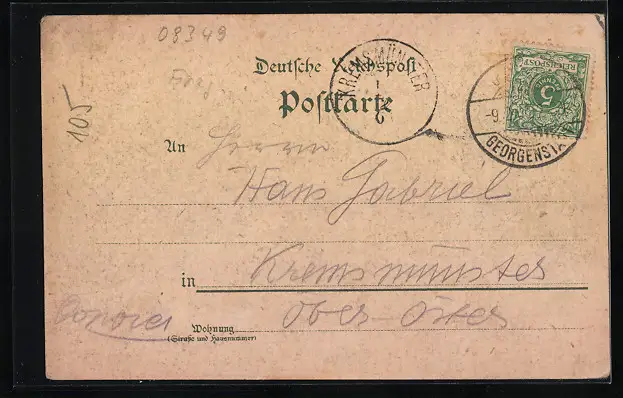 08349
105
Deutsche Reichspost
Postkarte
KREMSMÜNSTER
REICHSPOST
5
-9.
GEORGENST
An Herrn
Hans Gabriel
in Kremsmünster
Ober-Öster
Wohnung
(Straße und Hausnummer)